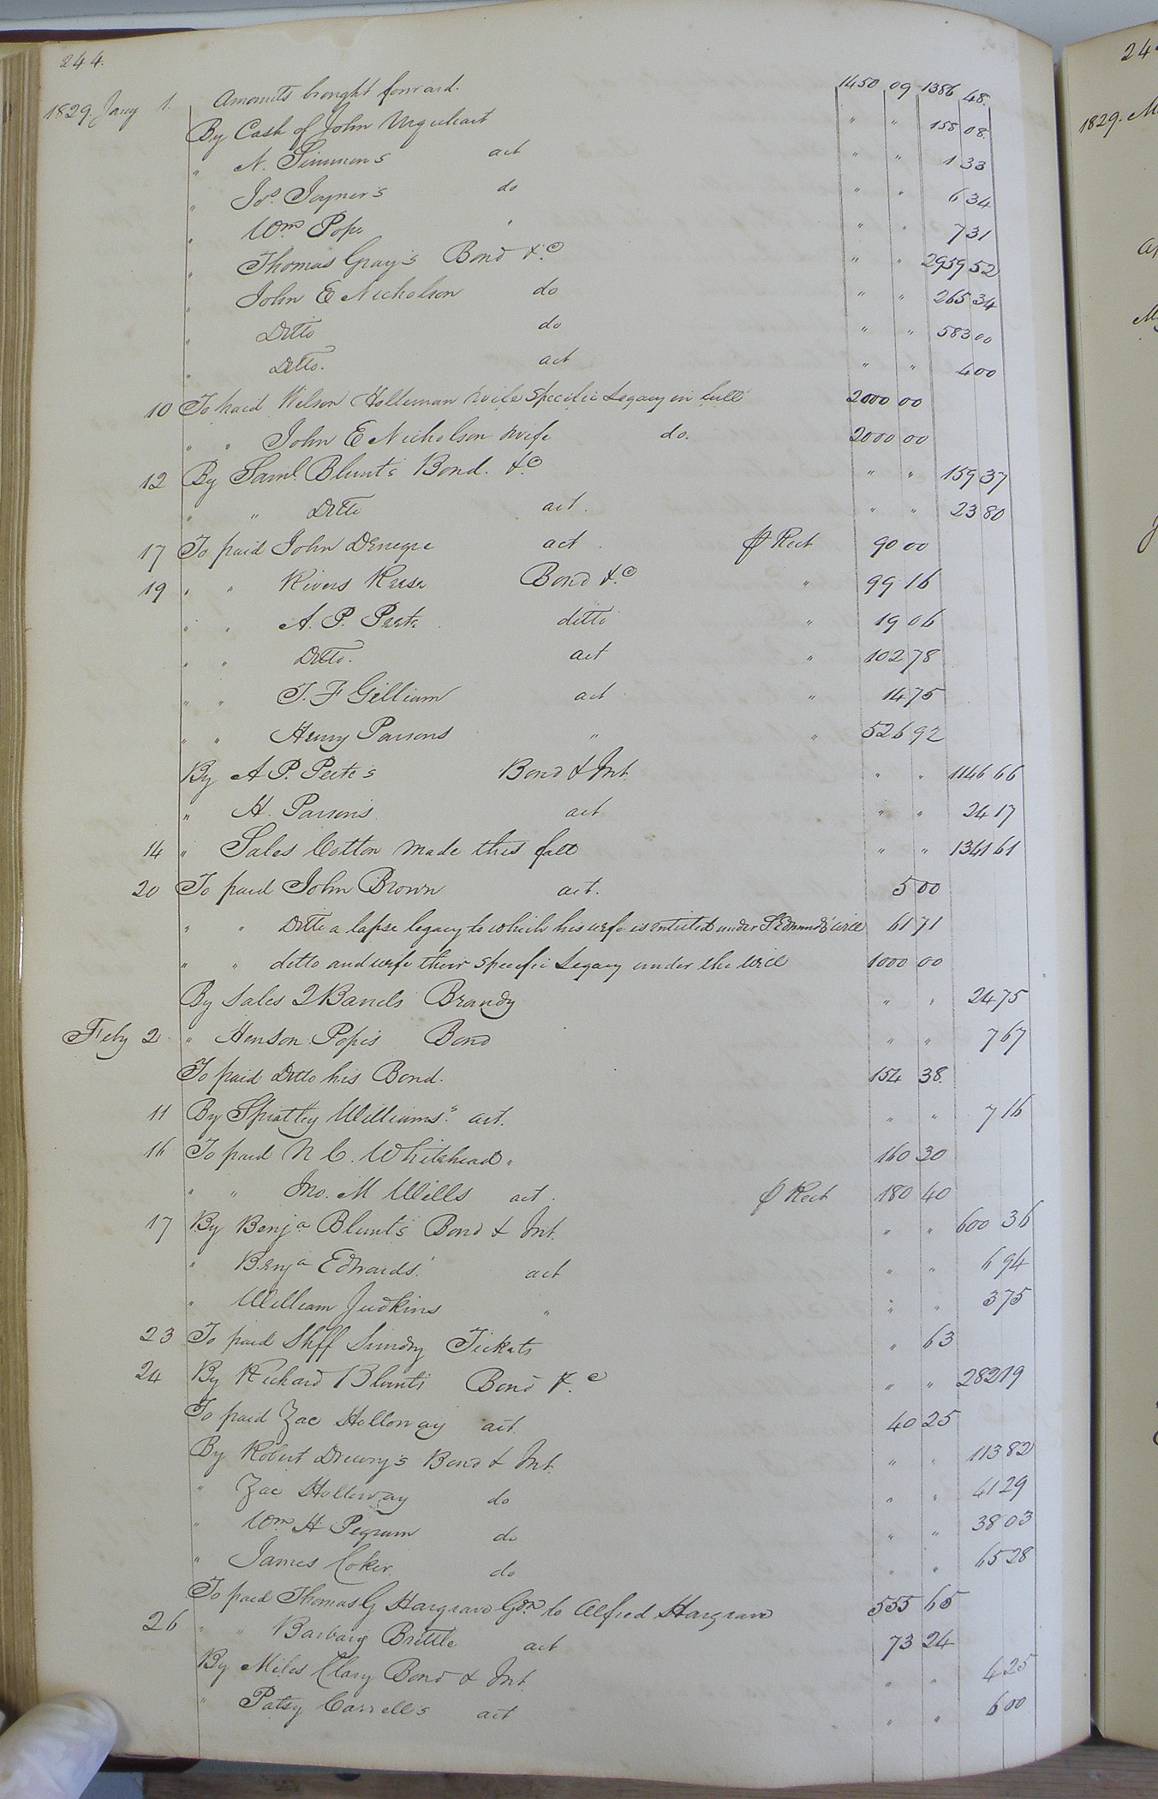 244.
1829 Jany 1. Amounts brought forward. 1450 09 1386 48.
By Cash of John Urquhart " " 158 08.
" N. Simmons act " " 1 33
" Jos. Joyner's do " " 6 34
" Wm Pope " " " 7 31
" Thomas Gray's Bond &c " " 2959 52
" John E Nicholson do " " 265 34
" Ditto do " " 583 00
" Ditto. act " " 4 00
10 To paid Wilson Holleman wife Specific Legacy in full 2000 00
" " John E Nicholson wife do. 2000 00
12 By Saml Blunt's Bond. &c " " 159 37
" " Ditto act. " " 23 80
17 To paid John Denegre act ₱ Rect 90 00
19 " " Rivers Reese Bond &c " 99 16
" " A. P. Peete ditto " 19 06
" " Ditto. act " 102 78
" " J. F Gilliam act " 14 75
" " Henry Parsons " " 526 92
By A P. Peete's Bond & Int. " " 1146 66
" H. Parson's act " " 24 17
14 " Sales Cotton made this fall " " 1341 61
20 To paid John Brown act. 5 00
" " Ditto a lapse legacy to which his wife is entitled under S Edmunds' will 61 71
" " ditto and wife their specific Legacy under the Will 1000 00
By Sales 2 Barrels Brandy " " 24 75
Feby 2 " Henson Pope's Bond " " 7 67
To paid Ditto his Bond. 154 38.
11 By Spratley Williams' act. " " 7 16
16 To paid N C. Whitehead " 160 30
" " Jno. M Wills act. ₱ Rect 180 40
17 By Benja Blunt's Bond & Int. " " 600 36
" Benja Edwards' act " " 6 94
" William Judkins " " " 3 75
23 To paid Shff Sundry Tickets " 63
24 By Richard Blunt's Bond &c " " 282 19
To paid Zac Holloway act. 40 25
By Robert Drewry's Bond & Int. " " 113 82
" Zac Holloway do " " 41 29
" Wm H Pegram do " " 38 03
" James Coker do " " 65 28
To paid Thomas G Hargrave Gdn to Alfred Hargrave 555 65
26 " " Barbary Brittle act 73 24
By Miles Clary Bond & Int " " 4 25
" Patsy Carrell's act " " 6 00
1829. M